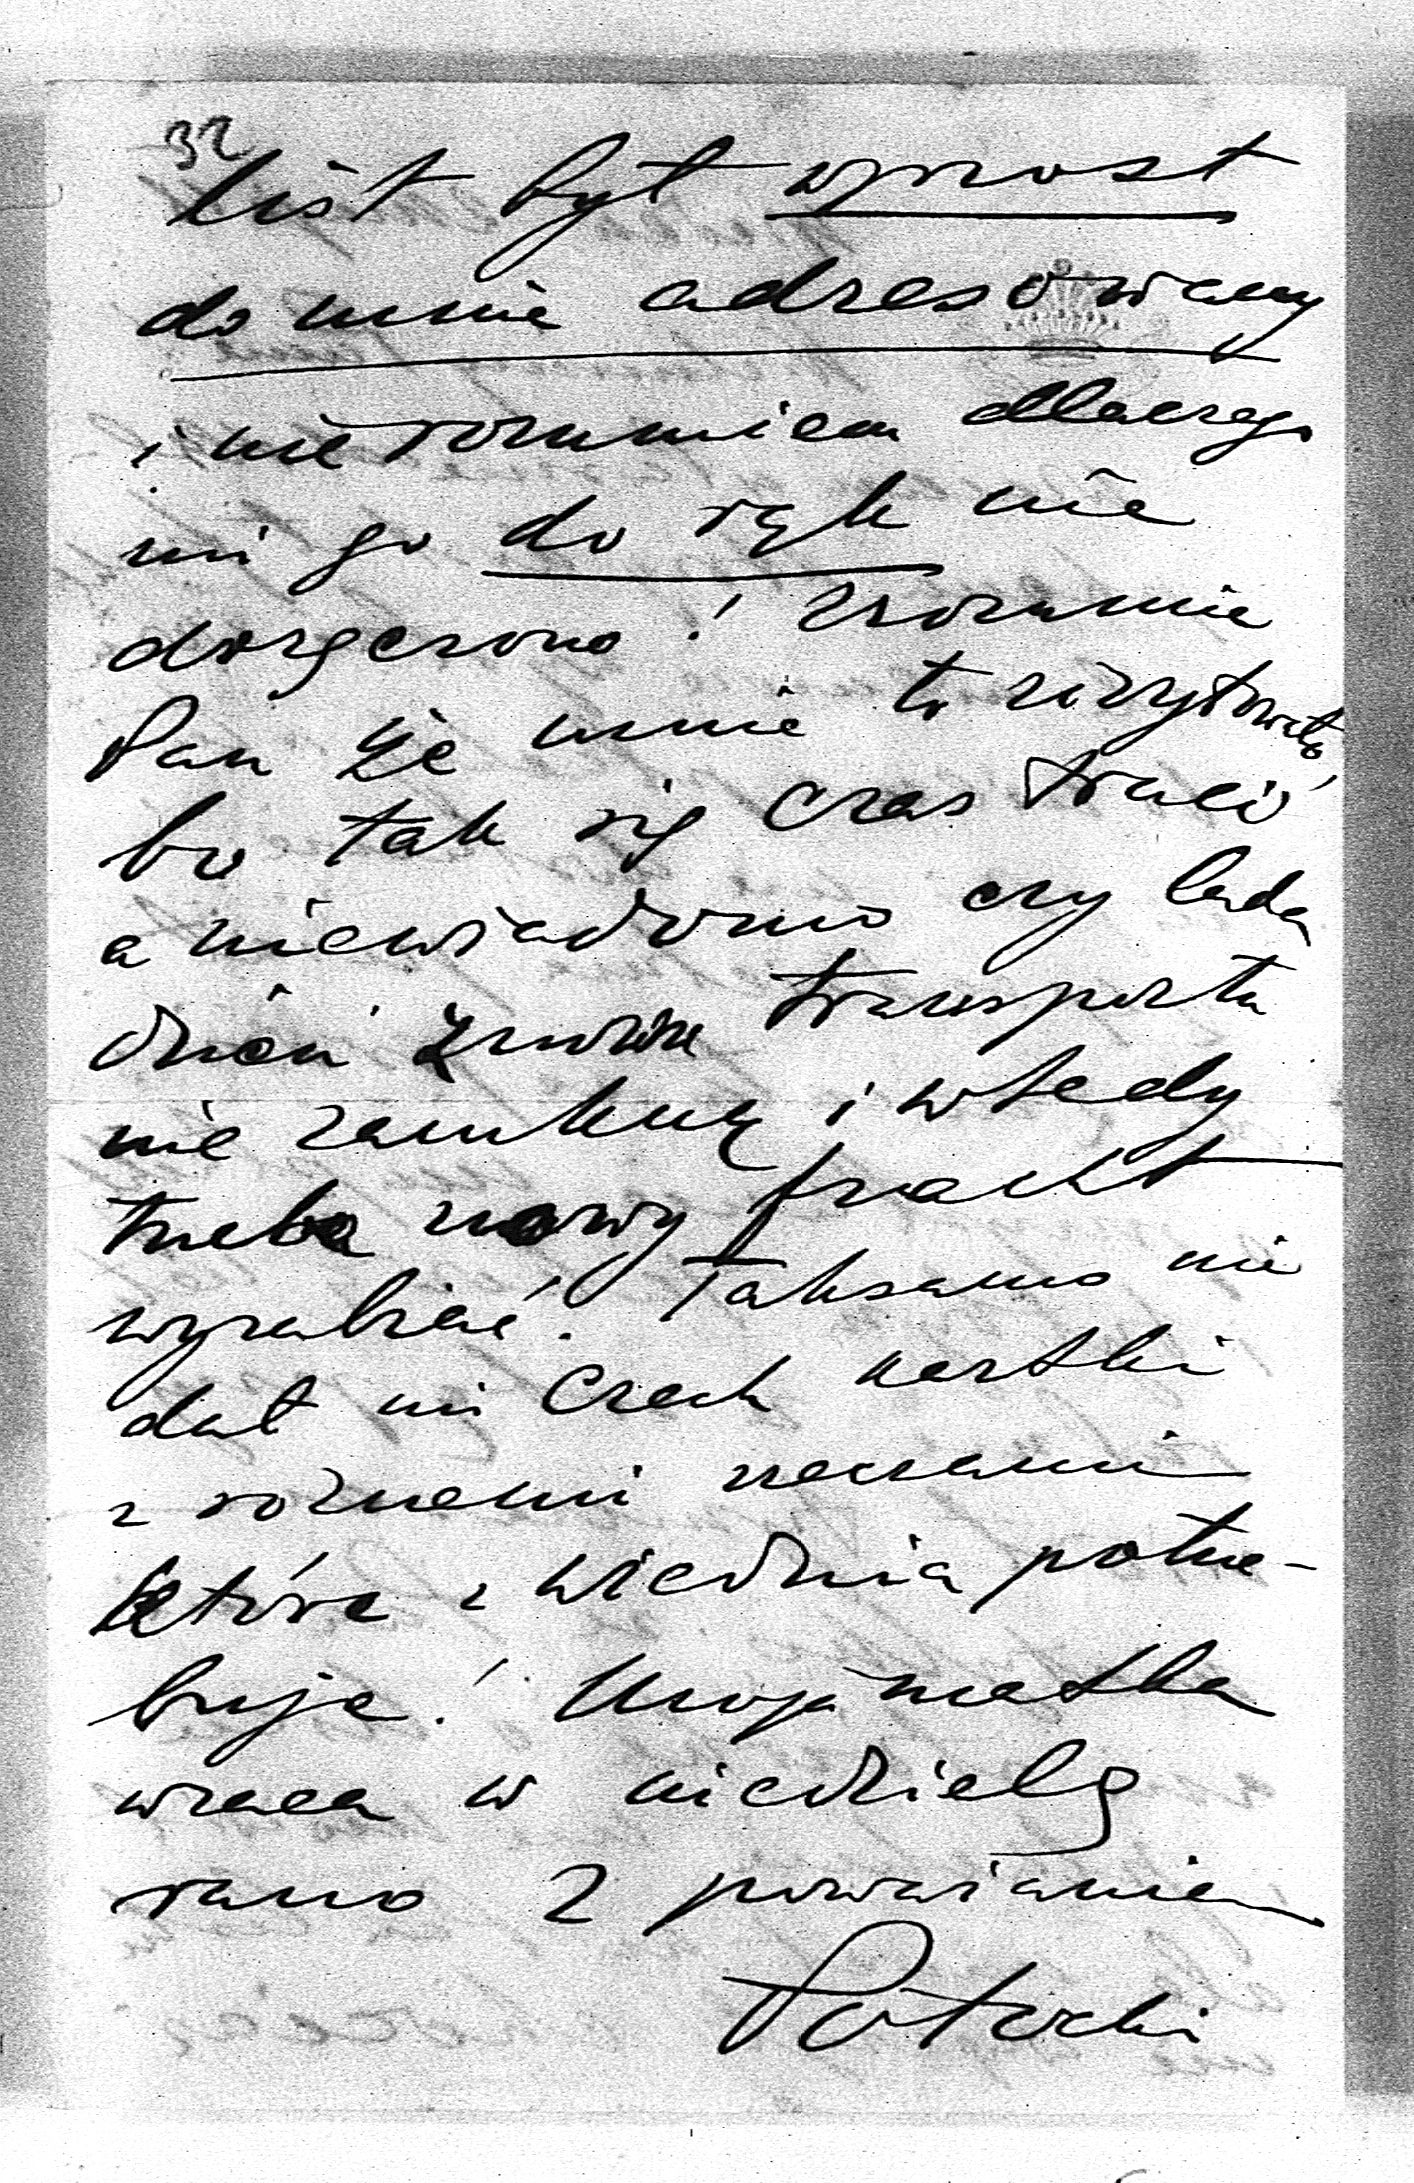 32
list był wprost
do mnie adresowany
i nie rozumiem dlaczego
mi go do rąk nie
doręczono! Zrozumie
Pan że mnie to zirytowało,
bo tak się czas traci
a niewiadomo czy lada
dzień znowu transportu
nie zamkną i wtedy
trzeba nowy fracht
wyrabiać. Taksamo nie
dał mi Czech kartki
z roznemi rzeczami
które z Wiednia potrze-
buje! Moja matka
wraca w niedzielę
rano Z poważaniem
Potocki